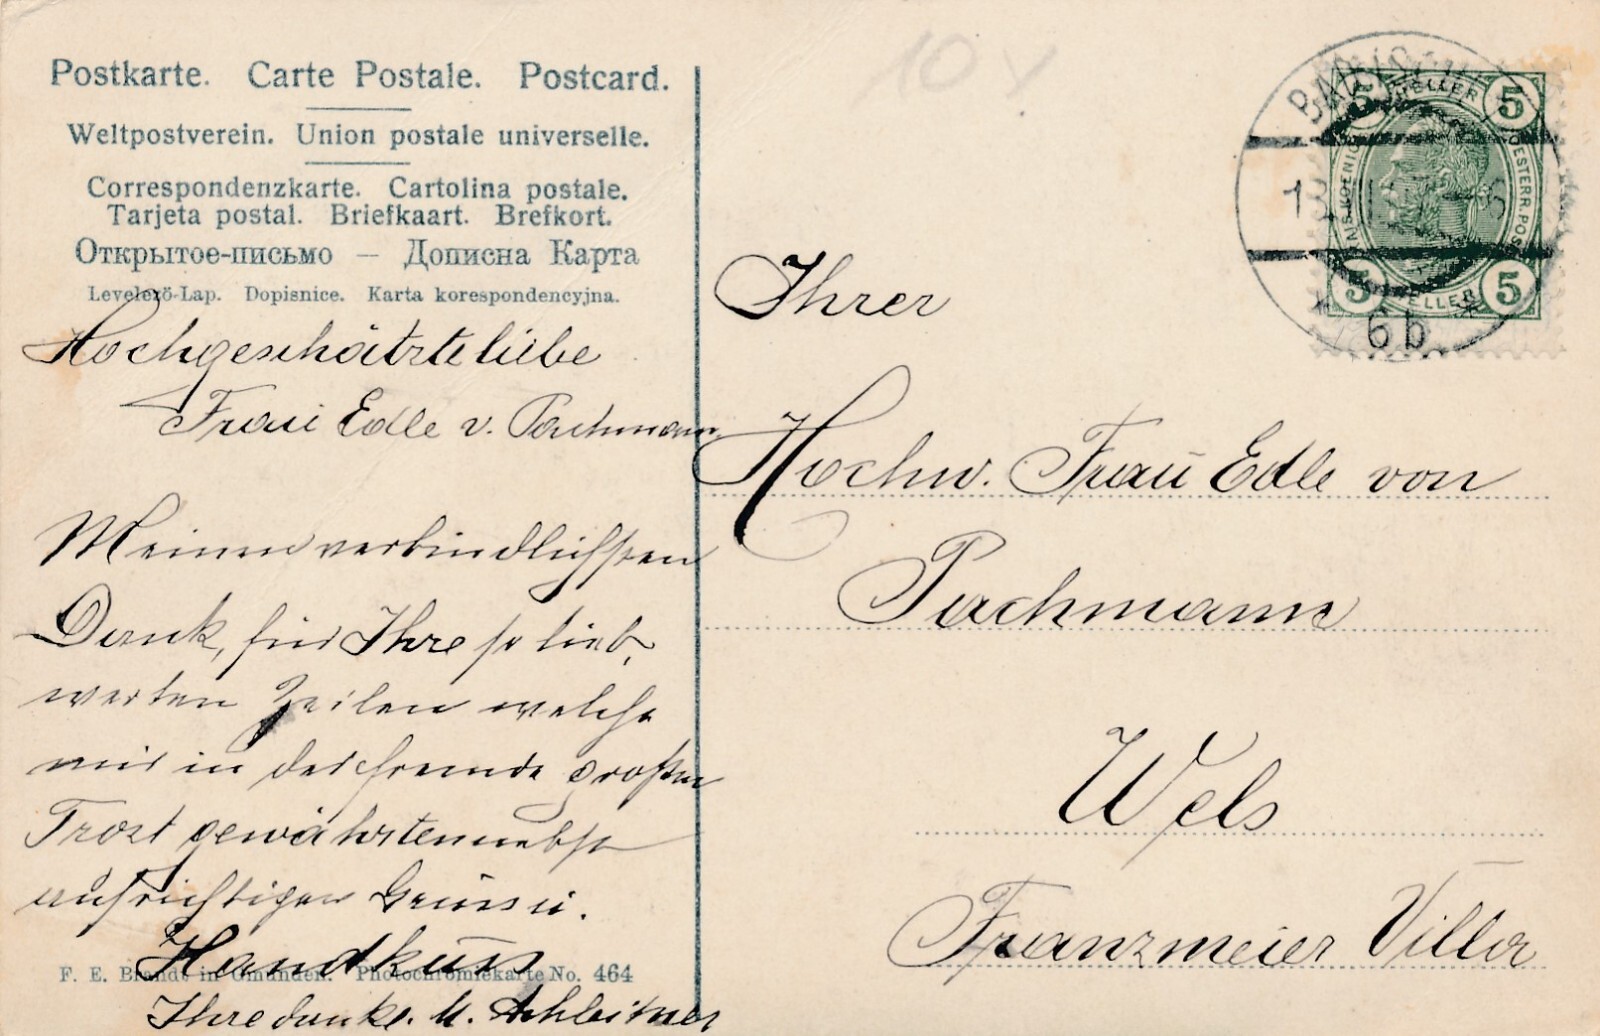 Postkarte. Carte Postale. Postcard.
Weltpostverein. Union postale universelle.
Correspondenzkarte. Cartolina postale.
Tarjeta postal. Briefkaart. Brefkort.
Открытое-письмо — Дописна Карта
Levelező-Lap. Dopisnice. Karta korespondencyjna.
Hochgeschätzte liebe
Frau Edle v. Pachmann
Meinen verbindlichsten
Dank, für Ihre so lieb,
werten Zeilen welche
mir in der fremde großen
Trost gewährten nebst
aufrichtigen Gruss u.
Handkuss
F. E. Brandt in Gmunden. Photochromiekarte No. 464
Ihre dankb. M. Achleitner
10
5 HELLER 5
OESTERR. POST
5 HELLER 5
6b
Ihrer
Hochw. Frau Edle von
Pachmann
Wels
Franzmeier Villa